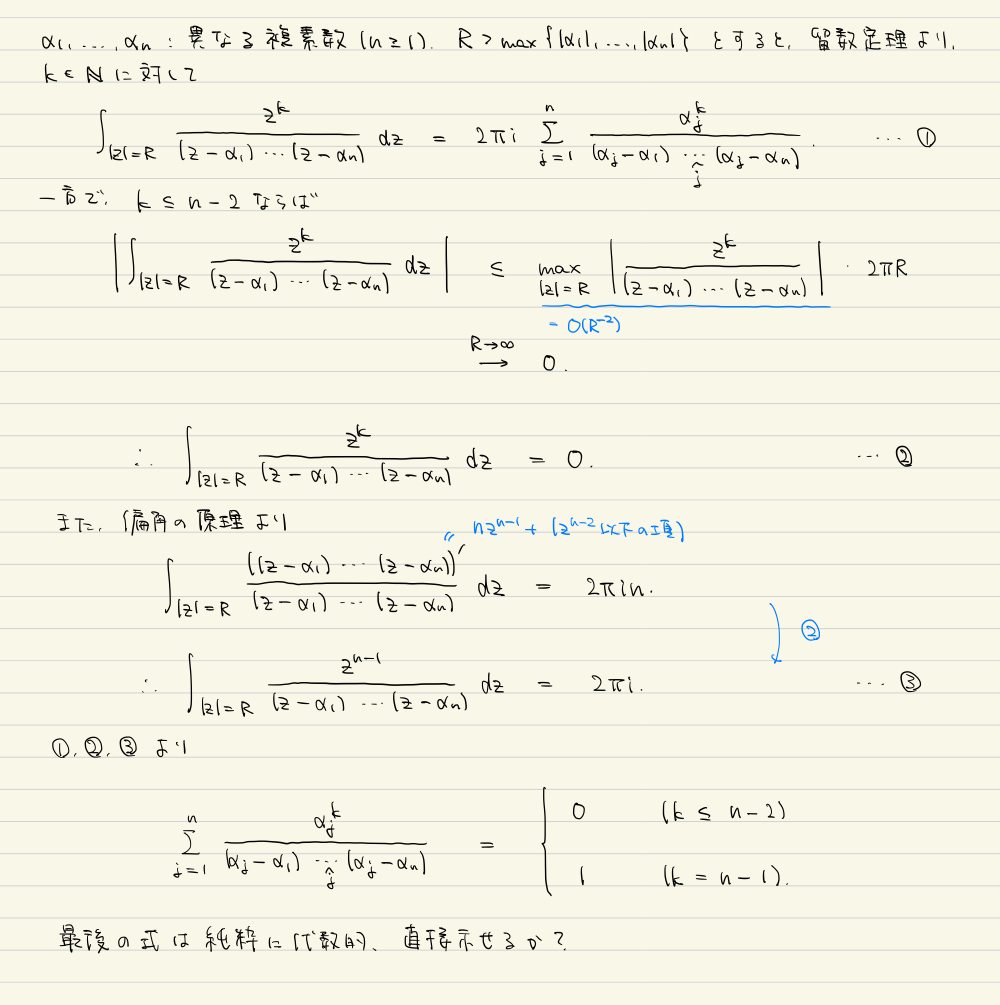 α₁, …, αₙ : 異なる複素数 (n ≥ 1). R > max{|α₁|, …, |αₙ|} とすると, 留数定理より,
k ∈ ℕ に対して
∫_{|z|=R} z^k / ((z − α₁) ⋯ (z − αₙ)) dz = 2πi Σ_{j=1}^{n} α_j^k / ((α_j − α₁) ⋯_{ĵ} (α_j − αₙ)). ⋯ ①
一方で, k ≤ n − 2 ならば
|∫_{|z|=R} z^k / ((z − α₁) ⋯ (z − αₙ)) dz| ≤ max_{|z|=R} |z^k / ((z − α₁) ⋯ (z − αₙ))| · 2πR
= O(R^{-2})
R→∞ ⟶ 0.
∴ ∫_{|z|=R} z^k / ((z − α₁) ⋯ (z − αₙ)) dz = 0. ⋯ ②
また, 偏角の原理より
〃 nz^{n-1} + (z^{n-2} 以下の項)
∫_{|z|=R} ((z − α₁) ⋯ (z − αₙ))′ / ((z − α₁) ⋯ (z − αₙ)) dz = 2πin.
②
∴ ∫_{|z|=R} z^{n-1} / ((z − α₁) ⋯ (z − αₙ)) dz = 2πi. ⋯ ③
①, ②, ③ より
Σ_{j=1}^{n} α_j^k / ((α_j − α₁) ⋯_{ĵ} (α_j − αₙ)) = { 0 (k ≤ n − 2)
1 (k = n − 1).
最後の式は純粋に代数的、直接示せるか?